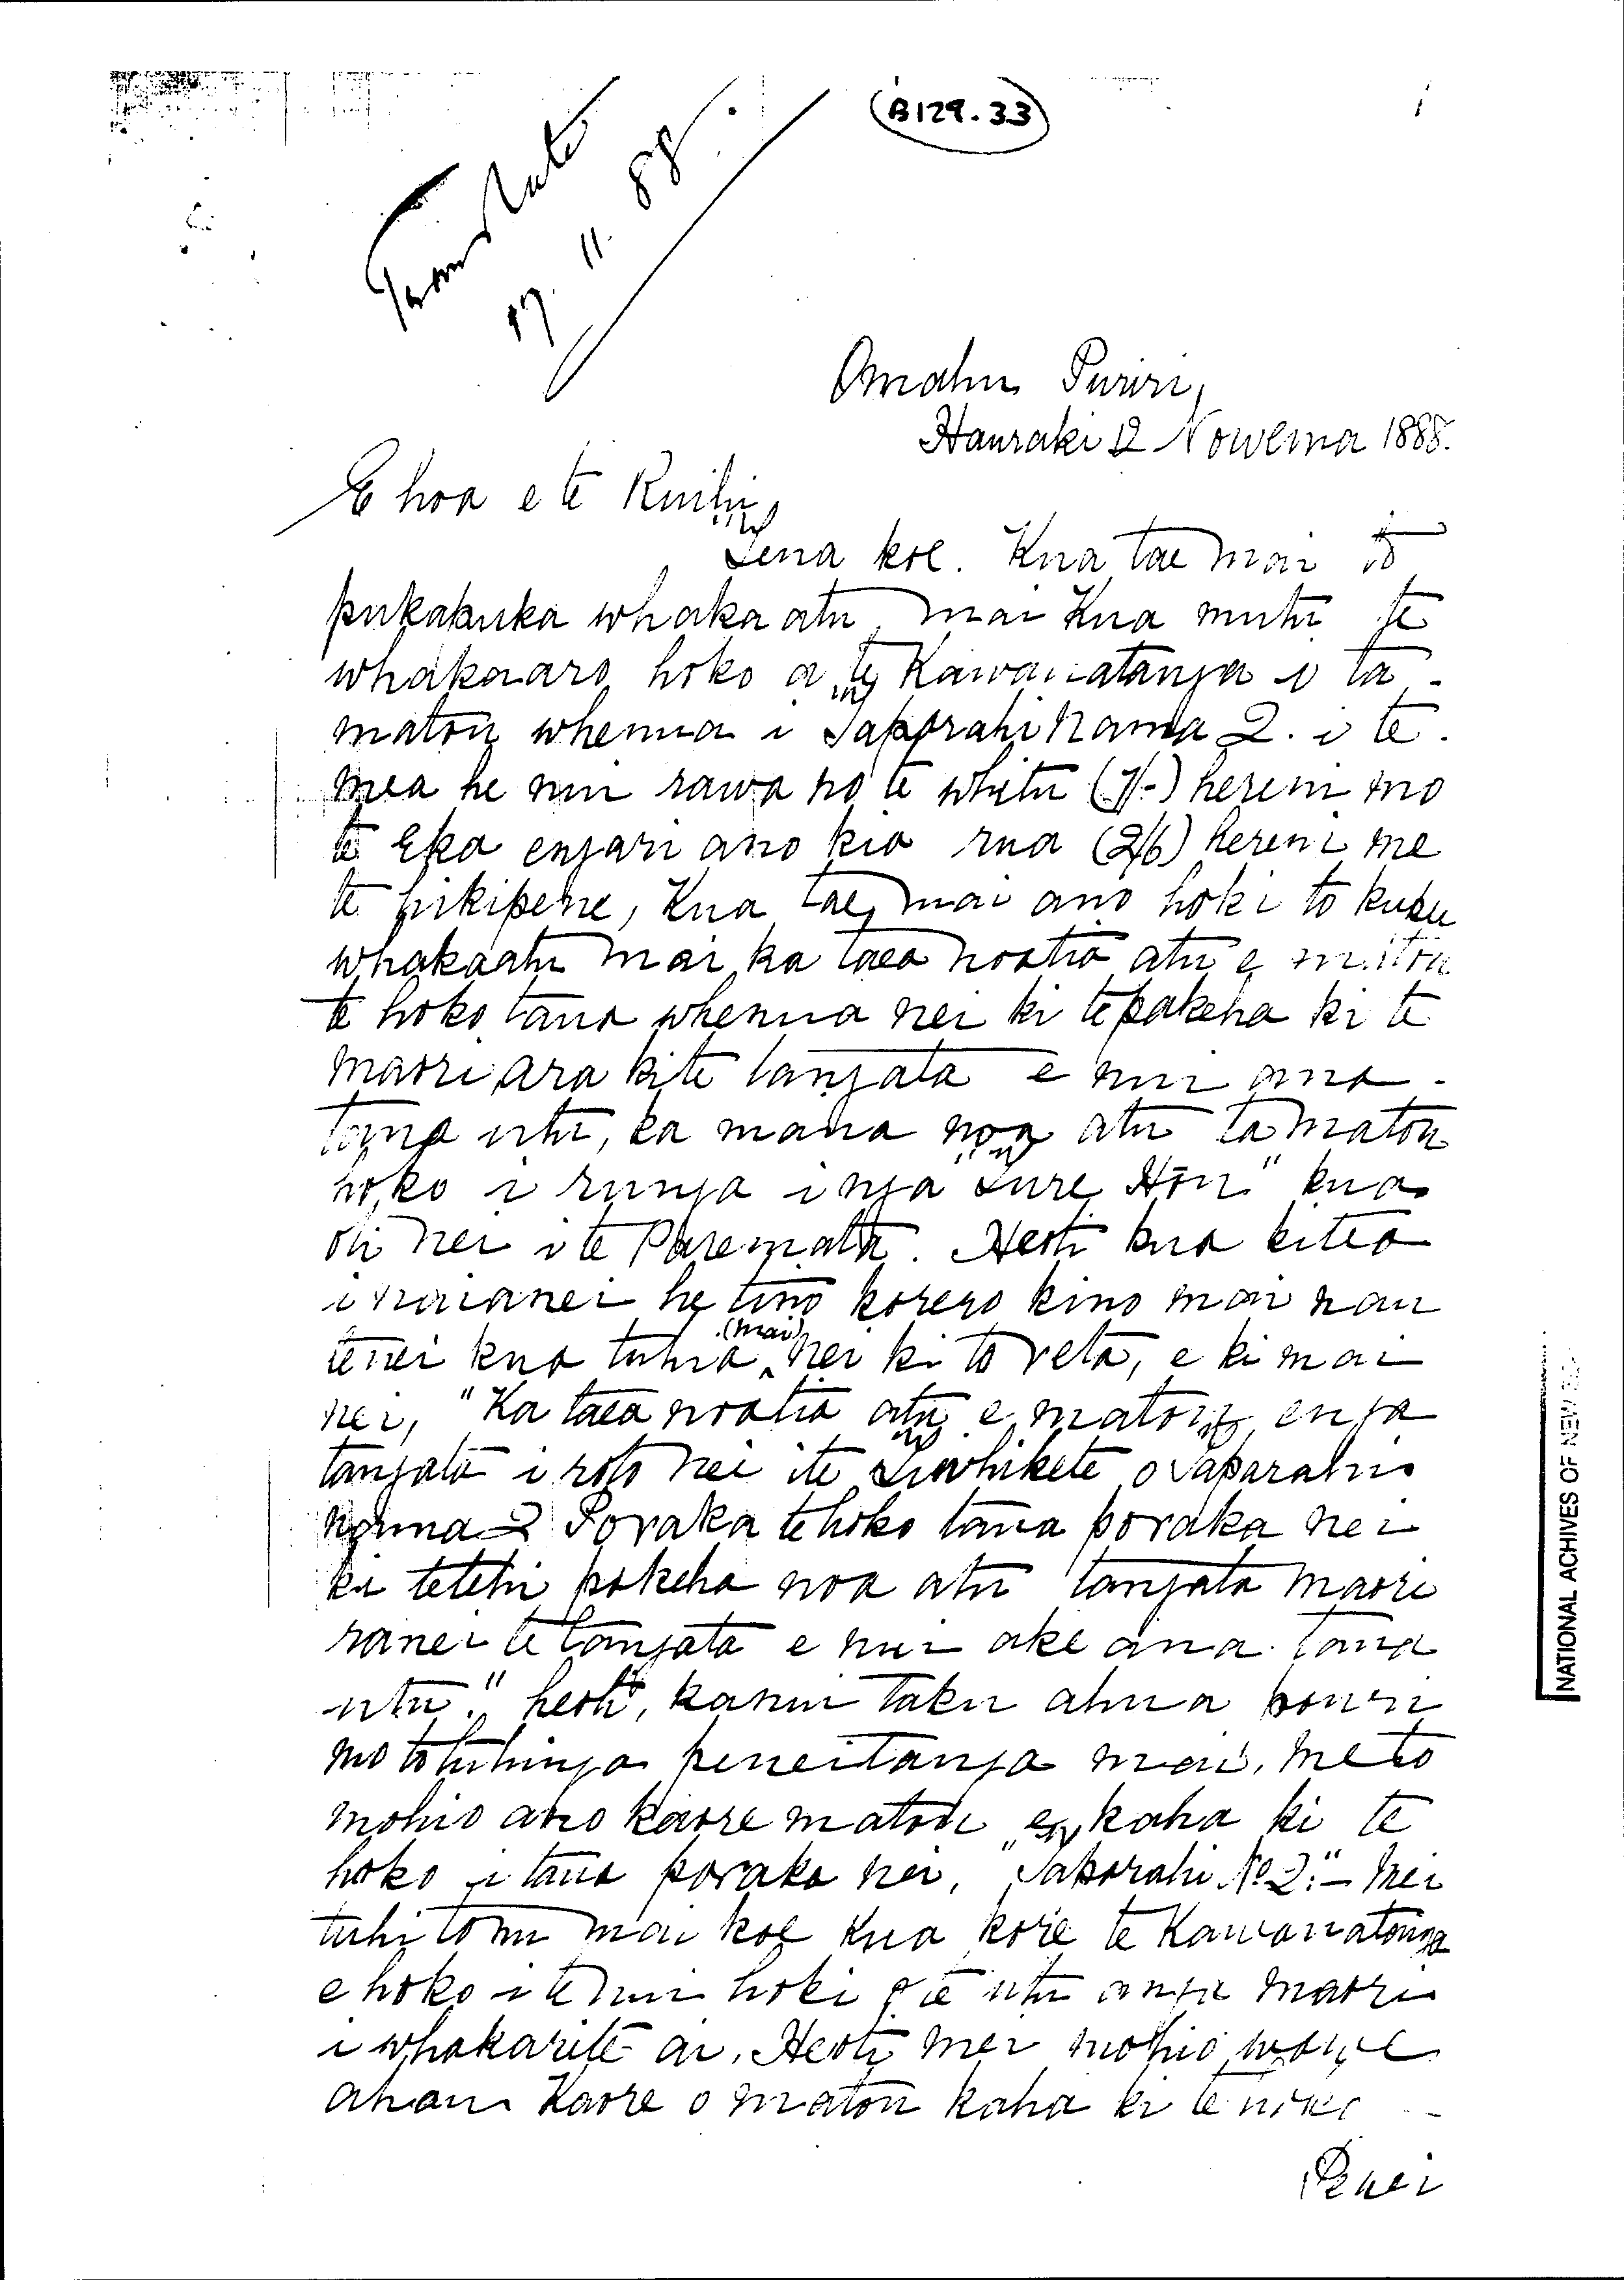 B129.33
Translate
17. 11. 88.
Omahu Puriri,
Hauraki 12 Nowema 1888.
E hoa e te Ruihi
Tena koe. Kua tae mai to
pukapuka whakaatu mai Kua mutu te
whakaaro hoko a te Kawanatanga i ta
matou whenua i Taparahi Nama 2. i te
mea he nui rawa no te whitu (7/-) hereni mo
te Eka engari ano kia rua (2/6) hereni me
te hikipene, Kua tae mai ano hoki to kupu
whakaatu mai ka taea noatia atu e matou
te hoko taua whenua nei ki te pakeha ki te
maori ara ki te tangata e nui ana
tana utu, ka mana noa atu ta matou
hoko i runga i nga "Ture Hou" kua
oti nei i te Paremata. Heoti kua kitea
i naianei he tino korero kino mai nau
tenei kua tuhia (mai) nei ki to reta, e ki mai
nei, "Ka taea noatia atu e matou, e nga
tangata i roto nei i te Tiwhikete o Taparahi
nama 2 Poraka te hoko taua poraka nei
ki tetehi pakeha noa atu tangata maori
ranei te tangata e nui ake ana tana
utu." heoti, kanui taku ahua pouri
mo to tuhinga peneitanga mai, me to
mohio ano kaore matou e kaha ki te
hoko i taua poraka nei, "Taparahi No 2."– Mei
tuhi tonu mai koe Kua kore te Kawanatanga
e hoko i te nui hoki o te utu a nga maori
i whakarite ai, Heoti mei mohio
ahau Kaore o matou kaha ki te hoko
Penei
NATIONAL ACHIVES OF NEW